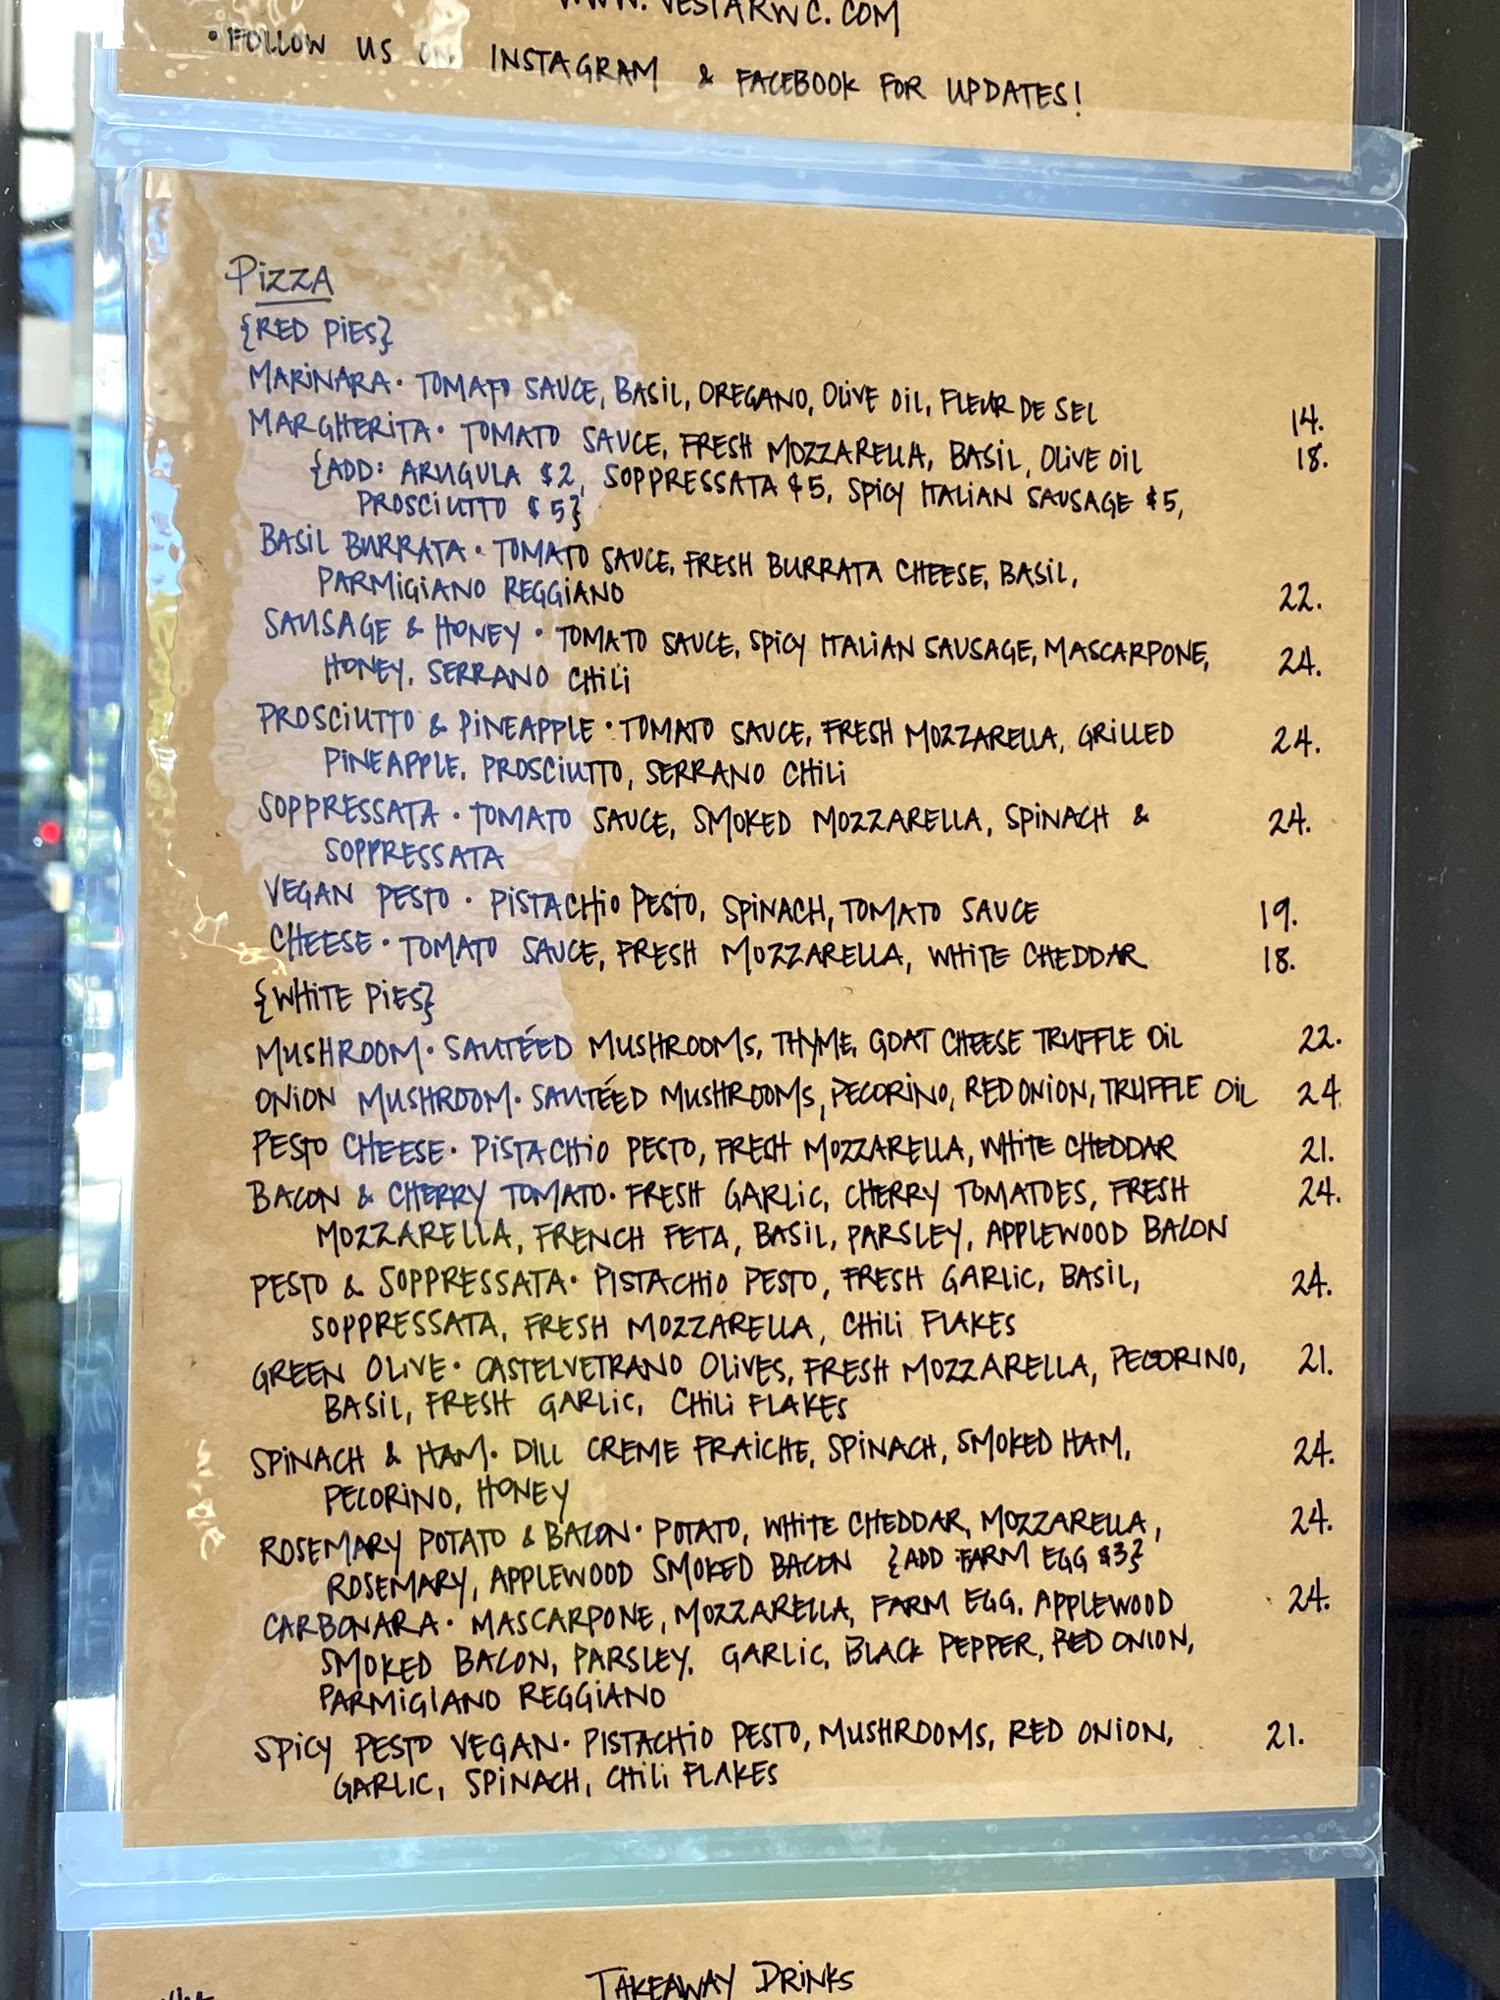 WWW.VESTARWC.COM
• FOLLOW US ON INSTAGRAM & FACEBOOK FOR UPDATES!
PIZZA
{RED PIES}
MARINARA • TOMATO SAUCE, BASIL, OREGANO, OLIVE OIL, FLEUR DE SEL 14.
MARGHERITA • TOMATO SAUCE, FRESH MOZZARELLA, BASIL, OLIVE OIL 18.
{ADD: ARUGULA $2, SOPPRESSATA $5, SPICY ITALIAN SAUSAGE $5,
PROSCIUTTO $5}
BASIL BURRATA • TOMATO SAUCE, FRESH BURRATA CHEESE, BASIL,
PARMIGIANO REGGIANO 22.
SAUSAGE & HONEY • TOMATO SAUCE, SPICY ITALIAN SAUSAGE, MASCARPONE,
HONEY, SERRANO CHILI 24.
PROSCIUTTO & PINEAPPLE • TOMATO SAUCE, FRESH MOZZARELLA, GRILLED 24.
PINEAPPLE, PROSCIUTTO, SERRANO CHILI
SOPPRESSATA • TOMATO SAUCE, SMOKED MOZZARELLA, SPINACH & 24.
SOPPRESSATA
VEGAN PESTO • PISTACHIO PESTO, SPINACH, TOMATO SAUCE 19.
CHEESE • TOMATO SAUCE, FRESH MOZZARELLA, WHITE CHEDDAR 18.
{WHITE PIES}
MUSHROOM • SAUTÉED MUSHROOMS, THYME, GOAT CHEESE TRUFFLE OIL 22.
ONION MUSHROOM • SAUTÉED MUSHROOMS, PECORINO, RED ONION, TRUFFLE OIL 24
PESTO CHEESE • PISTACHIO PESTO, FRESH MOZZARELLA, WHITE CHEDDAR 21.
BACON & CHERRY TOMATO • FRESH GARLIC, CHERRY TOMATOES, FRESH 24.
MOZZARELLA, FRENCH FETA, BASIL, PARSLEY, APPLEWOOD BACON
PESTO & SOPPRESSATA • PISTACHIO PESTO, FRESH GARLIC, BASIL, 24.
SOPPRESSATA, FRESH MOZZARELLA, CHILI FLAKES
GREEN OLIVE • CASTELVETRANO OLIVES, FRESH MOZZARELLA, PECORINO, 21.
BASIL, FRESH GARLIC, CHILI FLAKES
SPINACH & HAM • DILL CREME FRAICHE, SPINACH, SMOKED HAM, 24.
PECORINO, HONEY
ROSEMARY POTATO & BACON • POTATO, WHITE CHEDDAR, MOZZARELLA, 24.
ROSEMARY, APPLEWOOD SMOKED BACON {ADD FARM EGG $3}
CARBONARA • MASCARPONE, MOZZARELLA, FARM EGG, APPLEWOOD 24.
SMOKED BACON, PARSLEY, GARLIC, BLACK PEPPER, RED ONION,
PARMIGIANO REGGIANO
SPICY PESTO VEGAN • PISTACHIO PESTO, MUSHROOMS, RED ONION, 21.
GARLIC, SPINACH, CHILI FLAKES
TAKEAWAY DRINKS